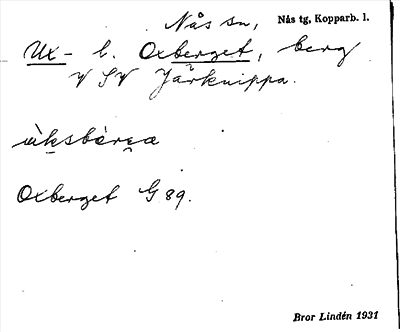 Nås sn, Nås tg, Kopparb. l.
Ux- l. Oxberget, berg
V SV Järknippa.
ùksbàrɛa
Oxberget G 89.
Bror Lindén 1931